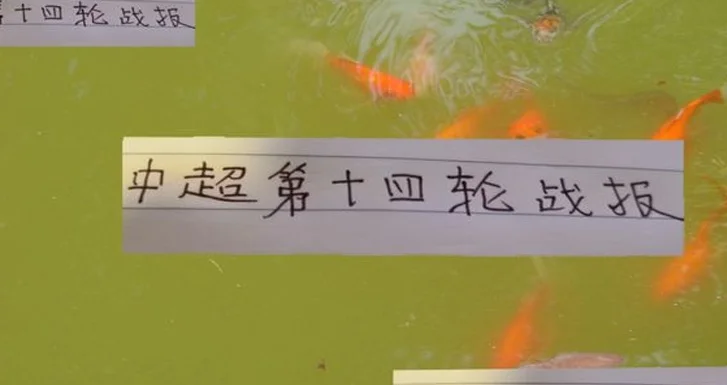 十四轮战报
中超第十四轮战报